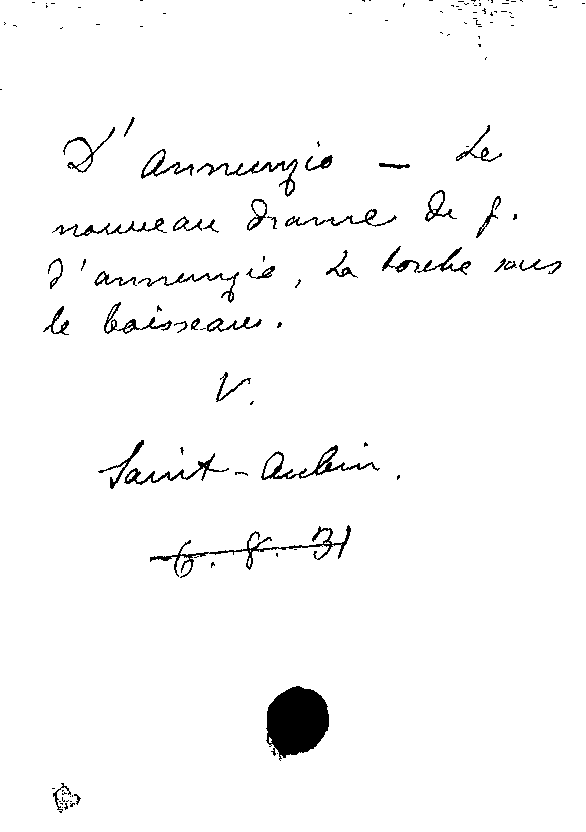 D'Annunzio — Le
nouveau drame de G.
d'Annunzio, La torche sous
le boisseau.
V.
Saint-Aubin.
6. 8. 31